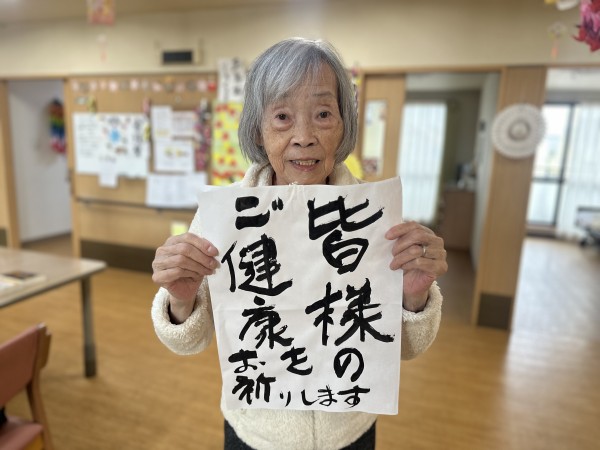 皆様の
ご健康を
お祈りします